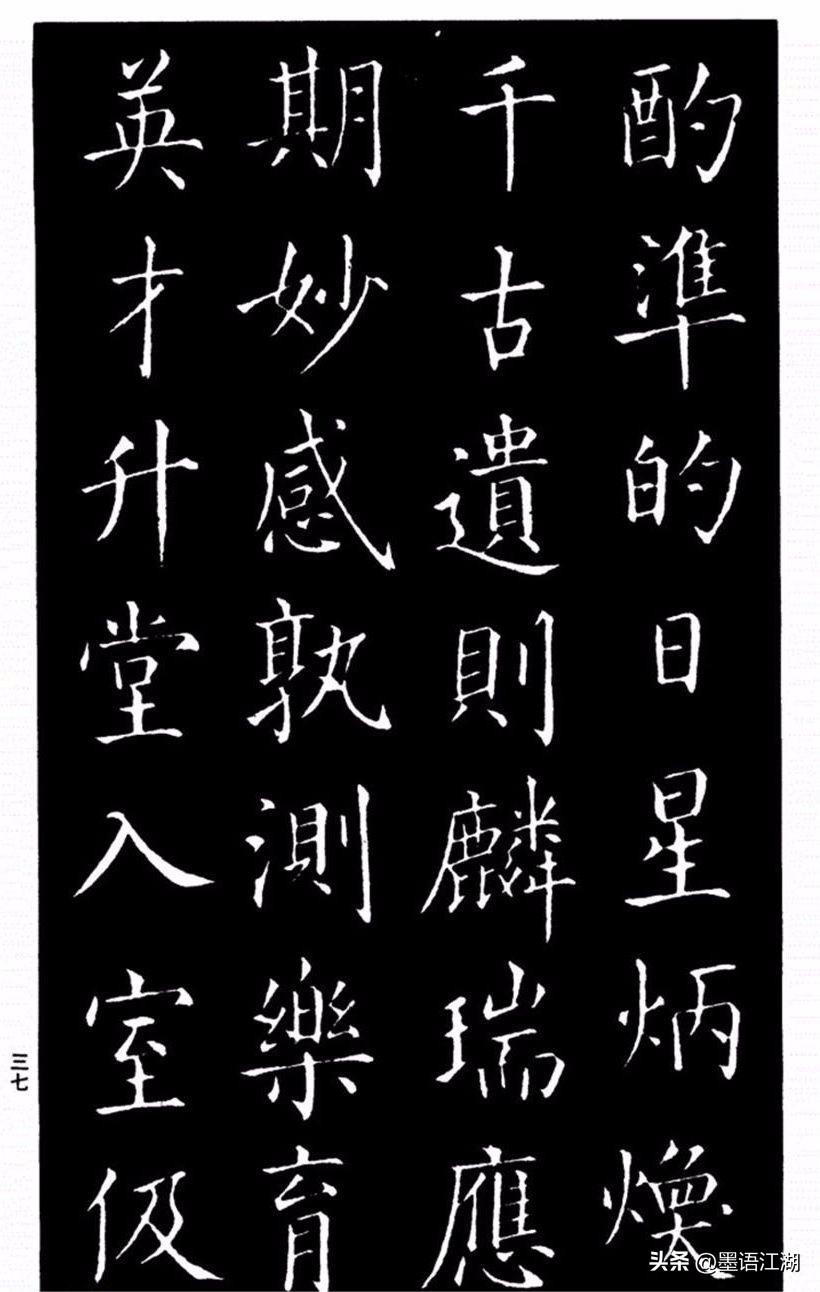 酌準的日星炳煥
千古遺則麟瑞應
期妙感孰測樂育
英才升堂入室伋
三七
头条 @墨语江湖